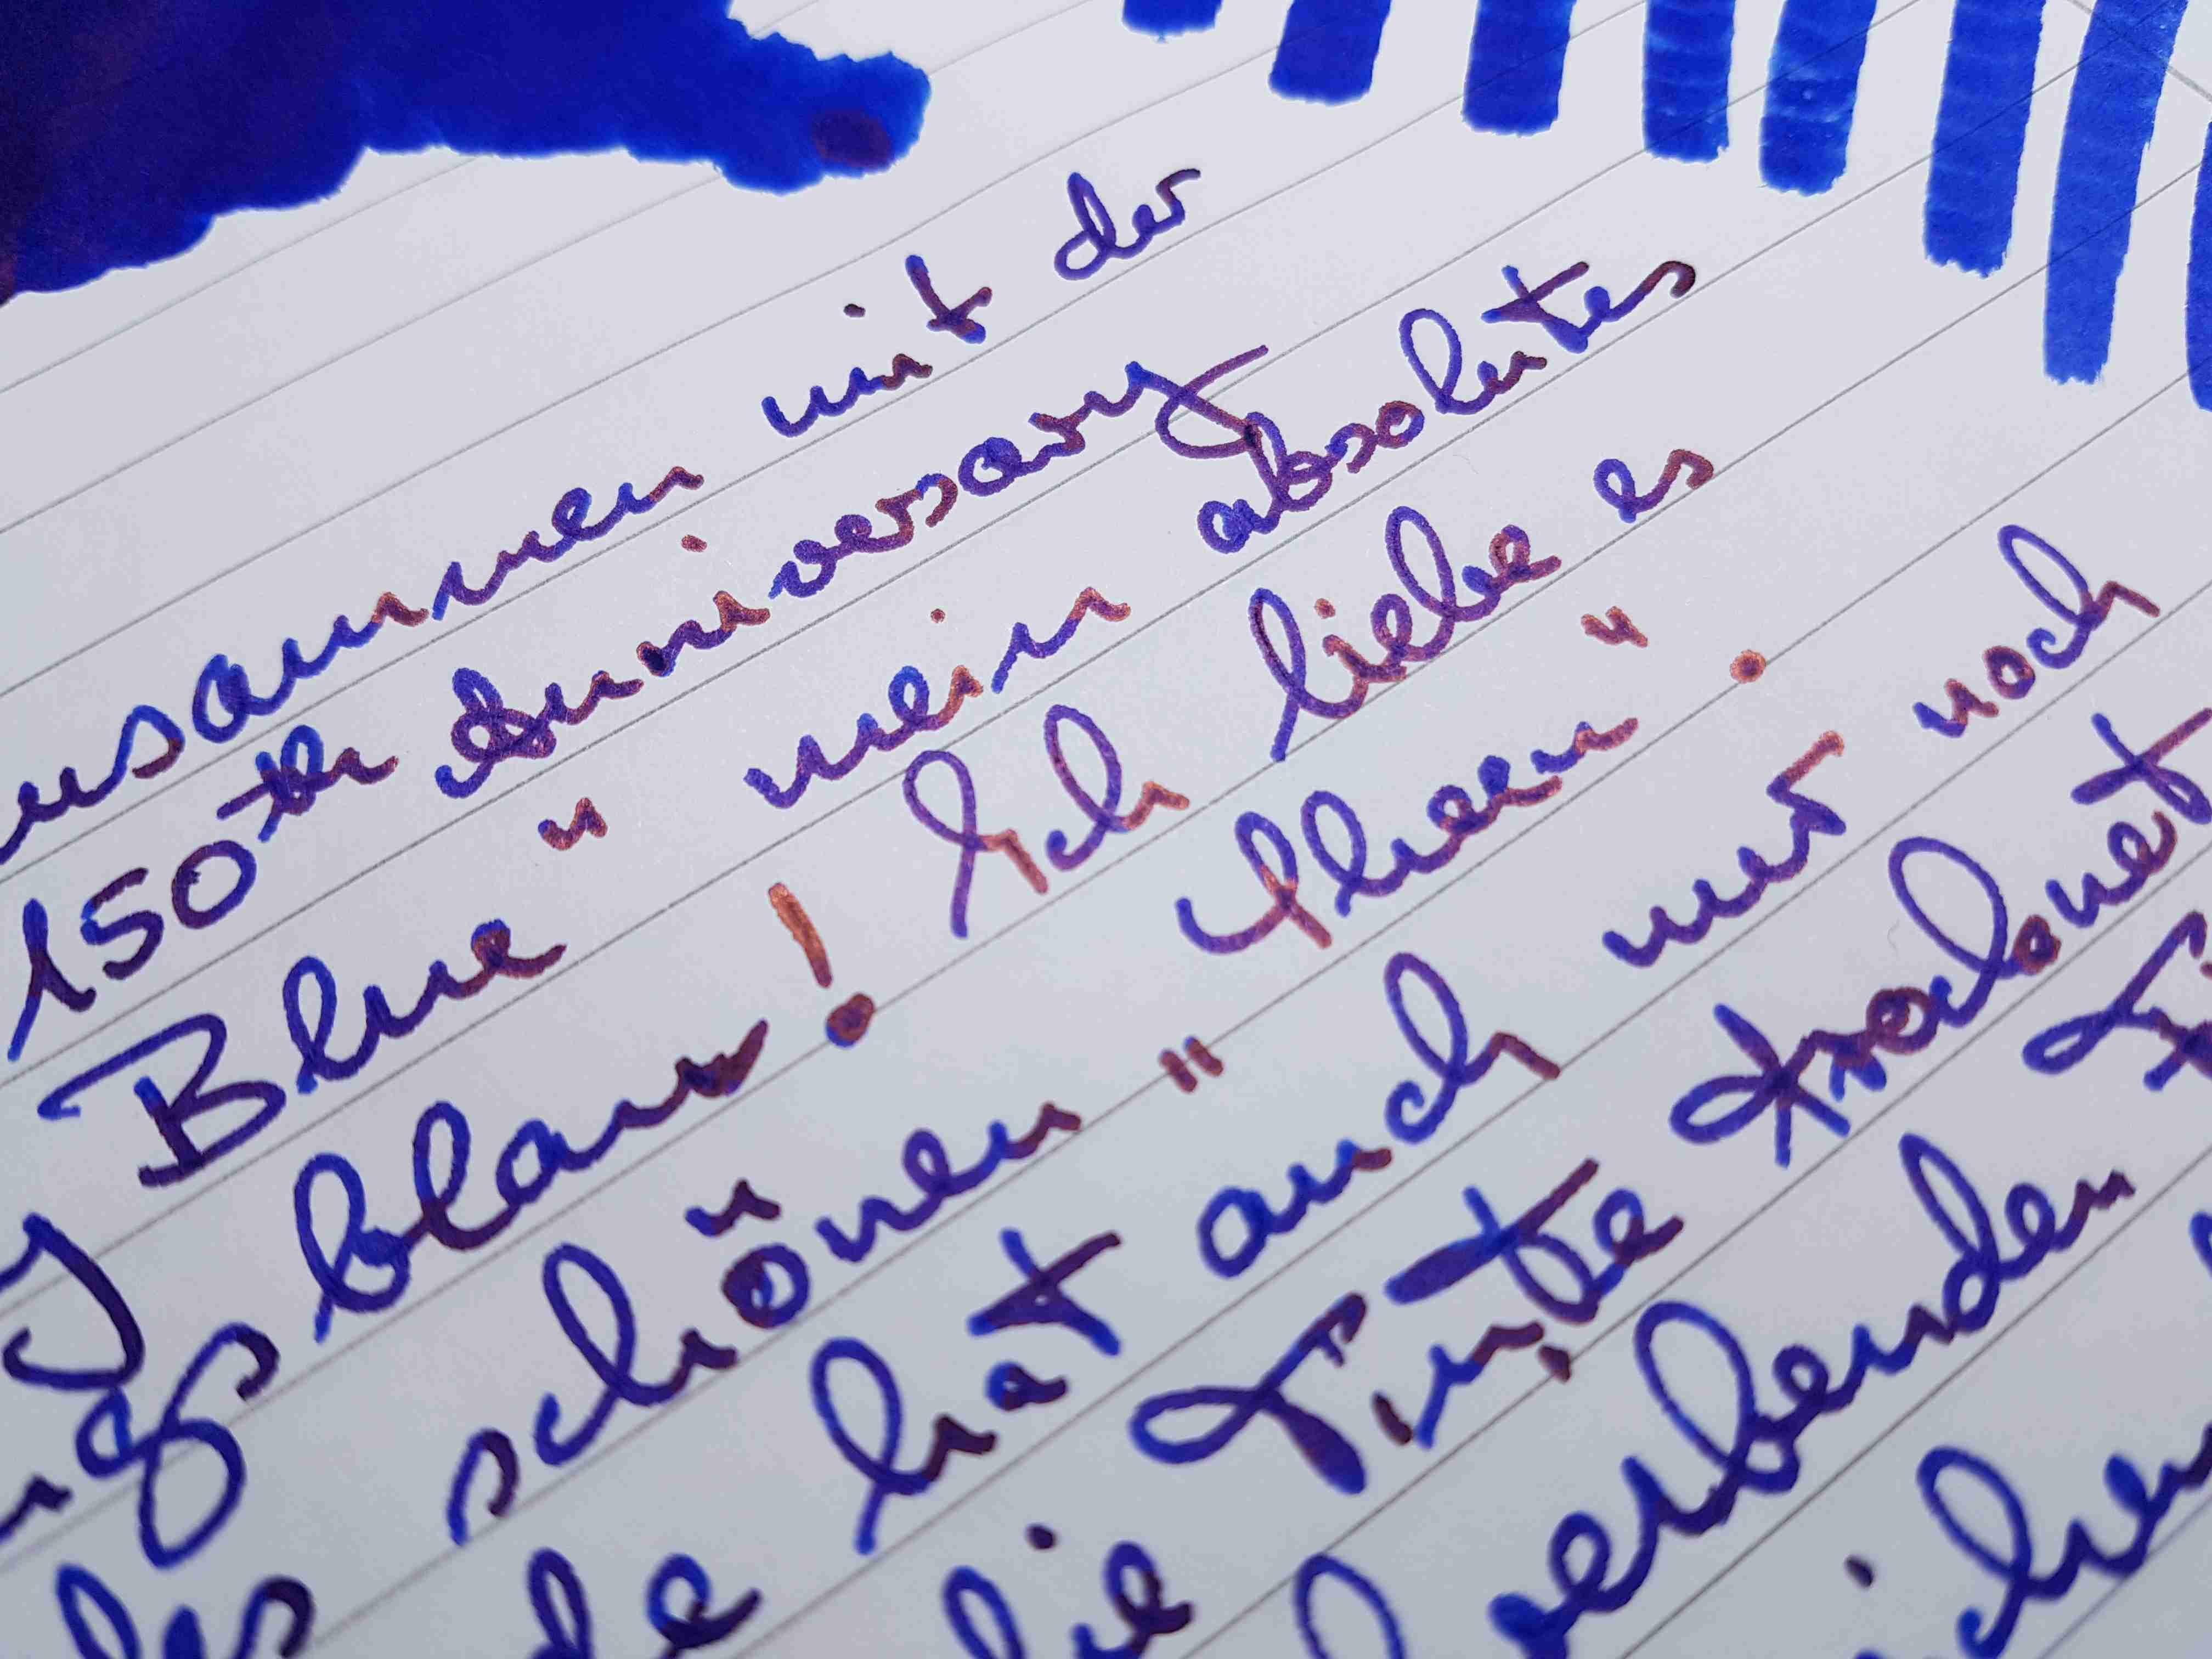 usammen mit der
150th Anniversary
Blue" mein absolutes
ngsblau! Ich liebe es
schönen "Sheen".
hat auch nur noch
die Tinte trocknet